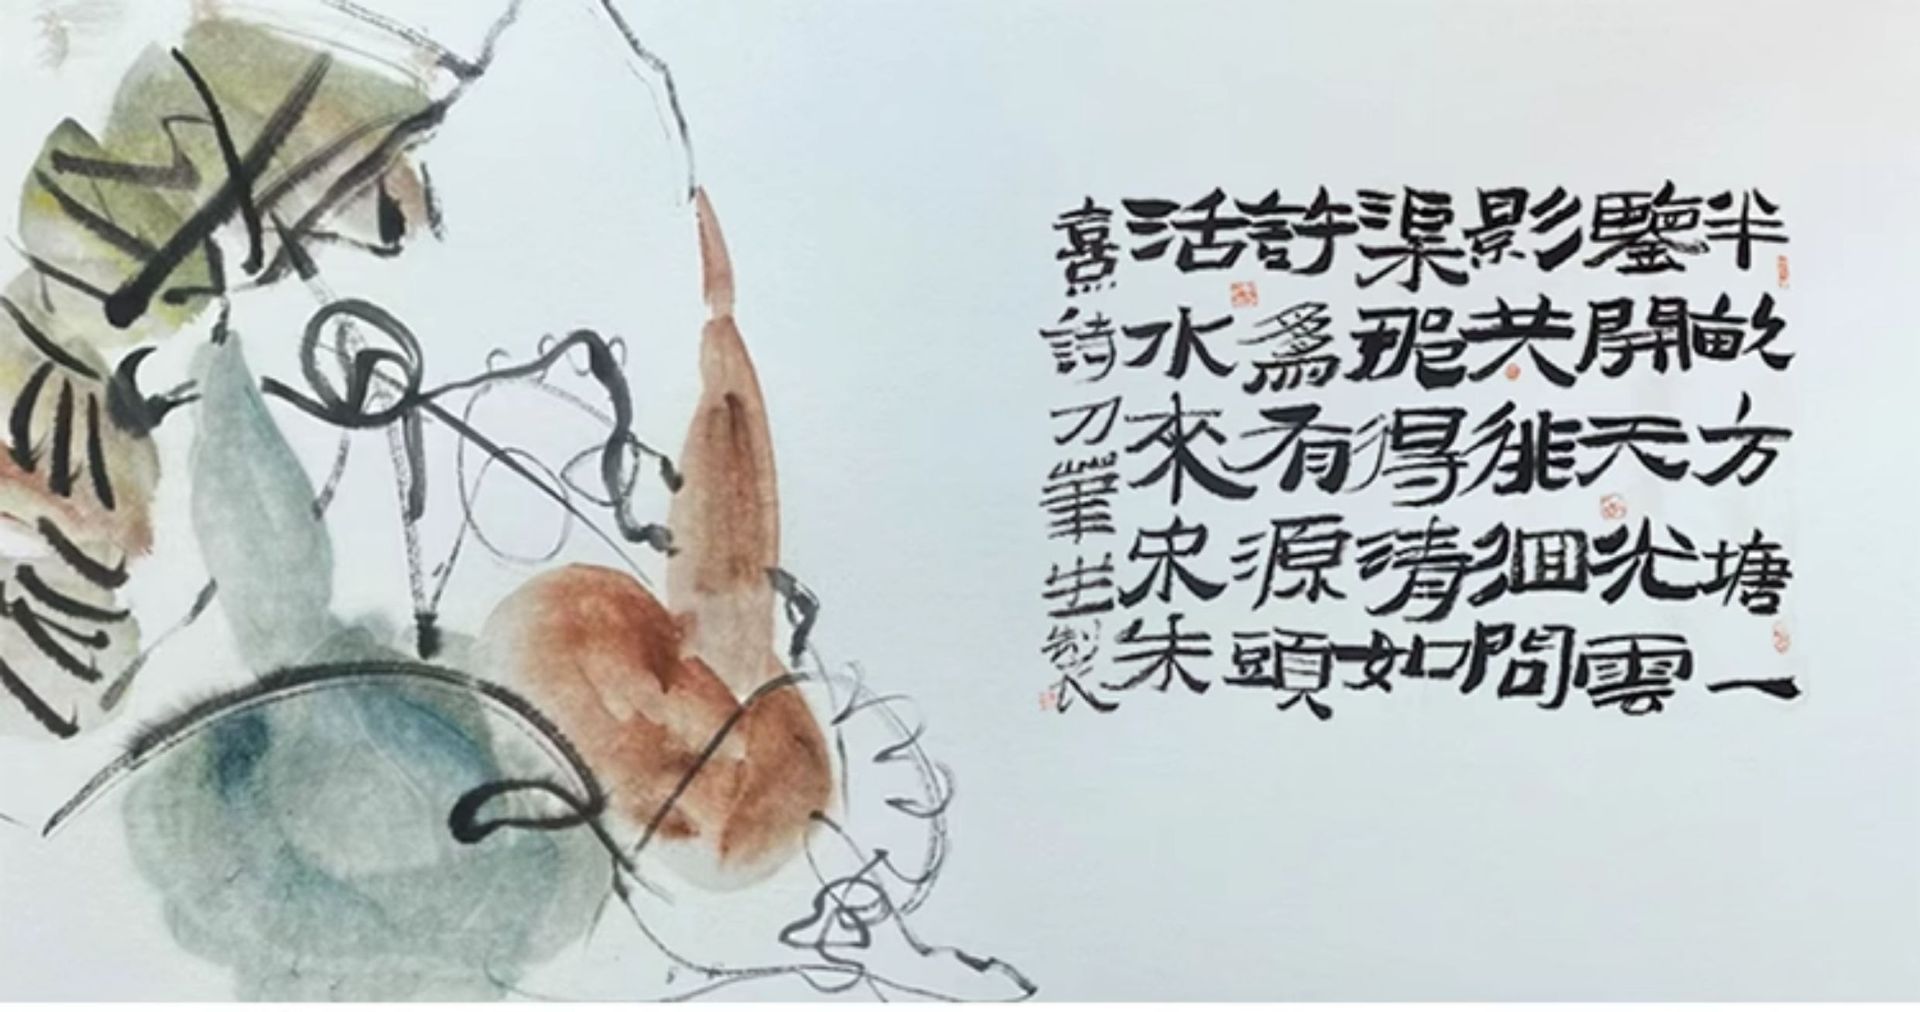 半畝方塘一
鑒開天光雲
影共徘徊問
渠那得清如
許爲有源頭
活水來宋朱
熹詩刀筆生製